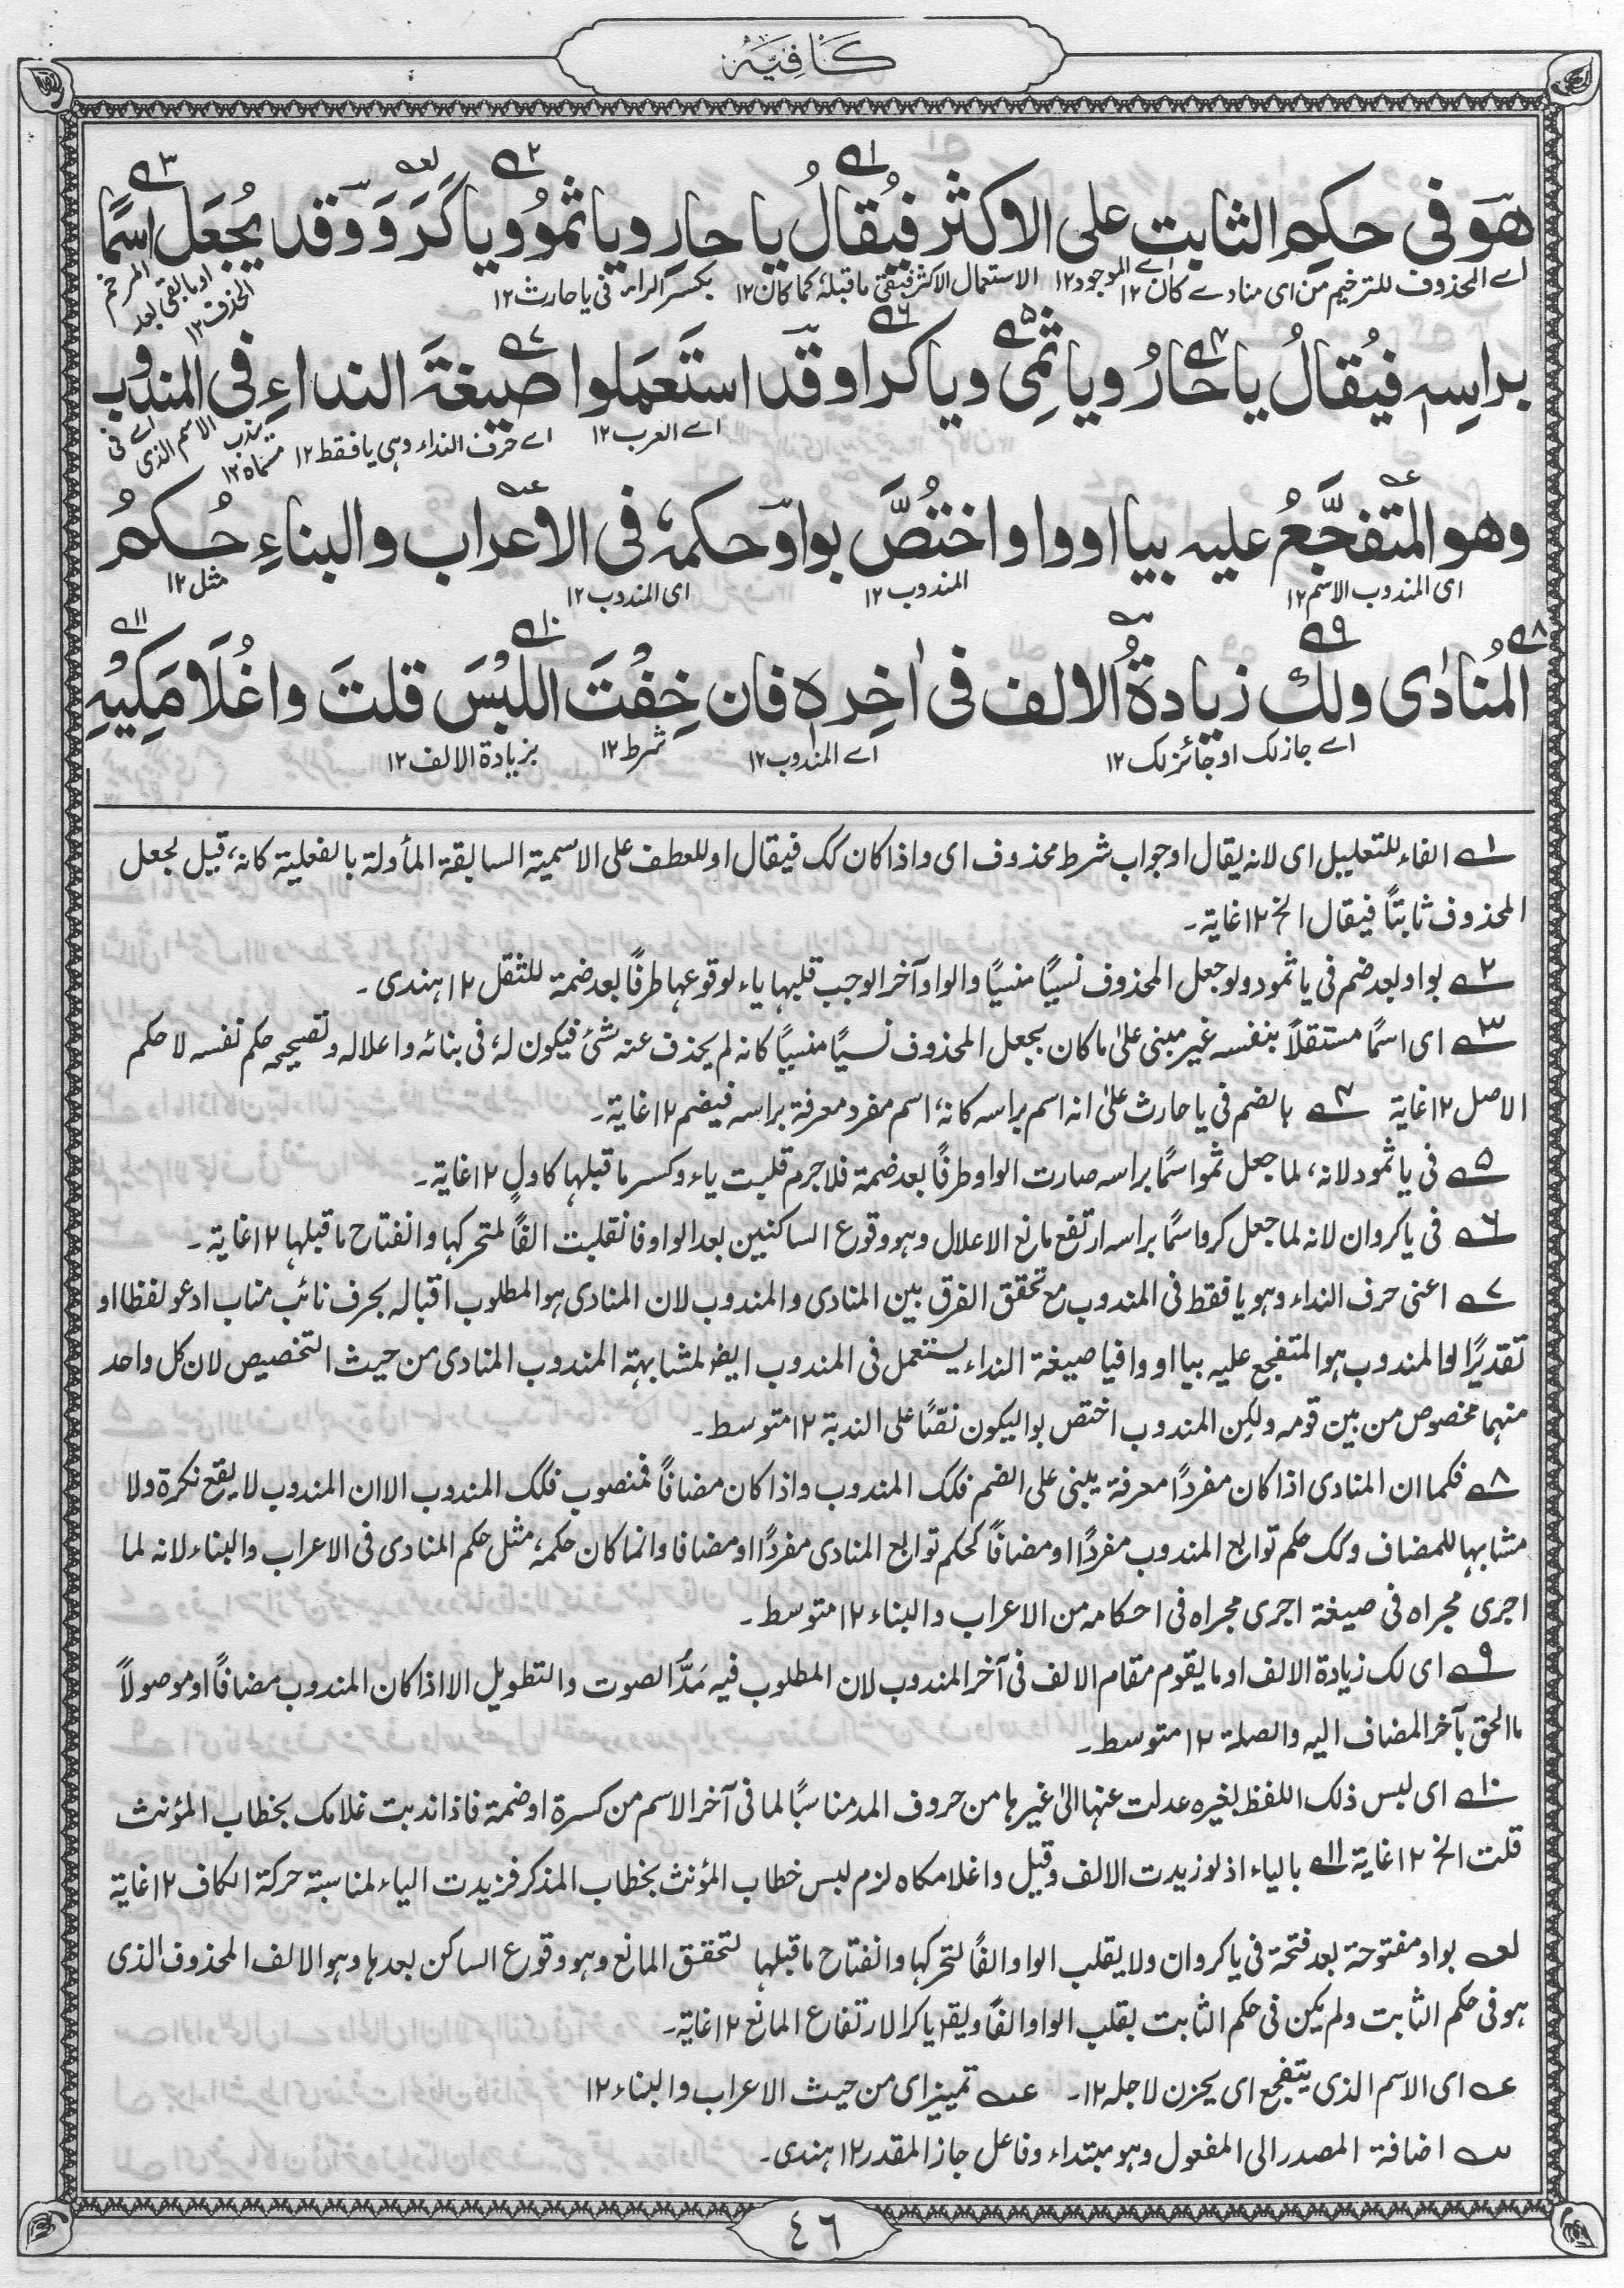 كَافِيَه
هو فی حكمِ الثابت علی الاكثر فيُقالُ يا حارِ ويا ثموُ ويا كَرَوَ وقد يُجعَل اسمًا
اے المحذوف للترخيم من ای منادے كان ١٢ اے الموجود ١٢ الاستعمال الاكثر فيبقی ما قبله كما كان ١٢ بكسر الراء فی يا حارث ١٢ المرخم او ما بقی بعد الحذف ١٢
براسِه فيُقالُ يا حارُ ويا ثمِی ويا كرا وقد استَعمَلوا صيغةَ النداءِ فی المندوب
اے العرب ١٢ اے حرف النداء وهی يا فقط ١٢ اے فی الاسم الذی يندب مسماه ١٢
وهو المتفجَّعُ عليه بيا او وا واختُصَّ بوا وحكمهٗ فی الاعراب والبناءِ حُكمُ
ای المندوب الاسم ١٢ المندوب ١٢ ای المندوب ١٢ مثل ١٢
المُنادٰی ولك زيادةُ الالف فی اٰخِرهٖ فان خِفتَ اللبْسَ قلتَ وا غُلَامَكِيْهِ
اے جاز لک او جائز لک ١٢ اے المندوب ١٢ شرط ١٢ بزيادة الالف ١٢
١ے الفاء للتعليل ای لانه يقال او جواب شرط محذوف ای واذا كان كک فيقال او للعطف علی الاسمية السابقة المأولة بالفعلية كانه، قيل يجعل
المحذوف ثابتًا فيقال الخ ١٢ غاية۔
٢ے بواو بعد ضم فی يا ثمود ولو جعل المحذوف نسيًا منسيًا والواو آخرا لوجب قلبها ياء لوقوعها طرفًا بعد ضمة للثقل ١٢ هندی۔
٣ے ای اسمًا مستقلاً بنفسه غير مبنی علیٰ ما كان بجعل المحذوف نسيًا منسيًا كانه لم يحذف عنه شئ فيكون له، فی بنائه واعلاله وتصحيحه حكم نفسه لا حكم
الاصل ١٢ غاية ٤ے بالضم فی يا حارث علیٰ انه اسم براسه كانه، اسم مفرد معرفة براسه فيضم ١٢ غاية۔
٥ے فی يا ثمود لانه، لما جعل ثمو اسمًا براسه صارت الواو طرفًا بعد ضمة فلا جرم قلبت ياء وكسر ما قبلها كادلٍ ١٢ غاية۔
٦ے فی يا كروان لانه لما جعل كرو اسمًا براسه ارتفع مانع الاعلال وهو وقوع الساكنين بعد الواو فانقلبت الفًا لتحركها وانفتاح ما قبلها ١٢ غاية۔
٧ے اعنی حرف النداء وهو يا فقط فی المندوب مع تحقق الفرق بين المنادی والمندوب لان المنادی هو المطلوب اقباله بحرف نائب مناب ادعو لفظا او
تقديرًا والمندوب هو المتفجع عليه بيا او وا فيا صيغة النداء يستعمل فی المندوب ايضا لمشابهة المندوب المنادی من حيث التخصيص لان كل واحد
منهما مخصوص من بين قومه ولكن المندوب اختص بوا ليكون نصًا علی الندبة ١٢ متوسط۔
٨ے فكما ان المنادی اذا كان مفردًا معرفة يبنی علی الضم فكک المندوب واذا كان مضافًا فمنصوب فكک المندوب الا ان المندوب لا يقع نكرة ولا
مشابها للمضاف وكک حكم توابع المندوب مفردًا او مضافًا كحكم توابع المنادی مفردًا او مضافا وانما كان حكمه، مثل حكم المنادی فی الاعراب والبناء لانه لما
اجری مجراه فی صيغة اجری مجراه فی احكامه من الاعراب والبناء ١٢ متوسط۔
٩ے ای لک زيادة الالف او ما يقوم مقام الالف فی آخر المندوب لان المطلوب فيه مَدُّ الصوت والتطويل الا اذا كان المندوب مضافًا او موصولاً
ما الحق بآخر المضاف اليه والصلة ١٢ متوسط۔
١٠ے ای لبس ذلک اللفظ بغيره عدلت عنها الیٰ غيرها من حروف المد مناسبًا لما فی آخر الاسم من كسرة او ضمة فاذا ندبت غلامک بخطاب المؤنث
قلت الخ ١٢ غاية ١١ے بالياء اذ لو زيدت الالف وقيل وا غلامكاه لزم لبس خطاب المؤنث بخطاب المذكر فزيدت الياء لمناسبة حركة الكاف ١٢ غاية
لعہ بواو مفتوحة بعد فتحة فی يا كروان ولا يقلب الواو الفًا لتحركها وانفتاح ما قبلها لتحقق المانع وهو وقوع الساكن بعدها وهو الالف المحذوف الذی
هو فی حكم الثابت ولم يكن فی حكم الثابت بقلب الواو الفًا ويقرء يا كرا لارتفاع المانع ١٢ غاية۔
عہ ای الاسم الذی يتفجع ای يحزن لاجله ١٢۔ عہ تميز ای من حيث الاعراب والبناء ١٢
سہ اضافة المصدر الی المفعول وهو مبتداء وفاعل جاز المقدر ١٢ هندی۔
٤٦